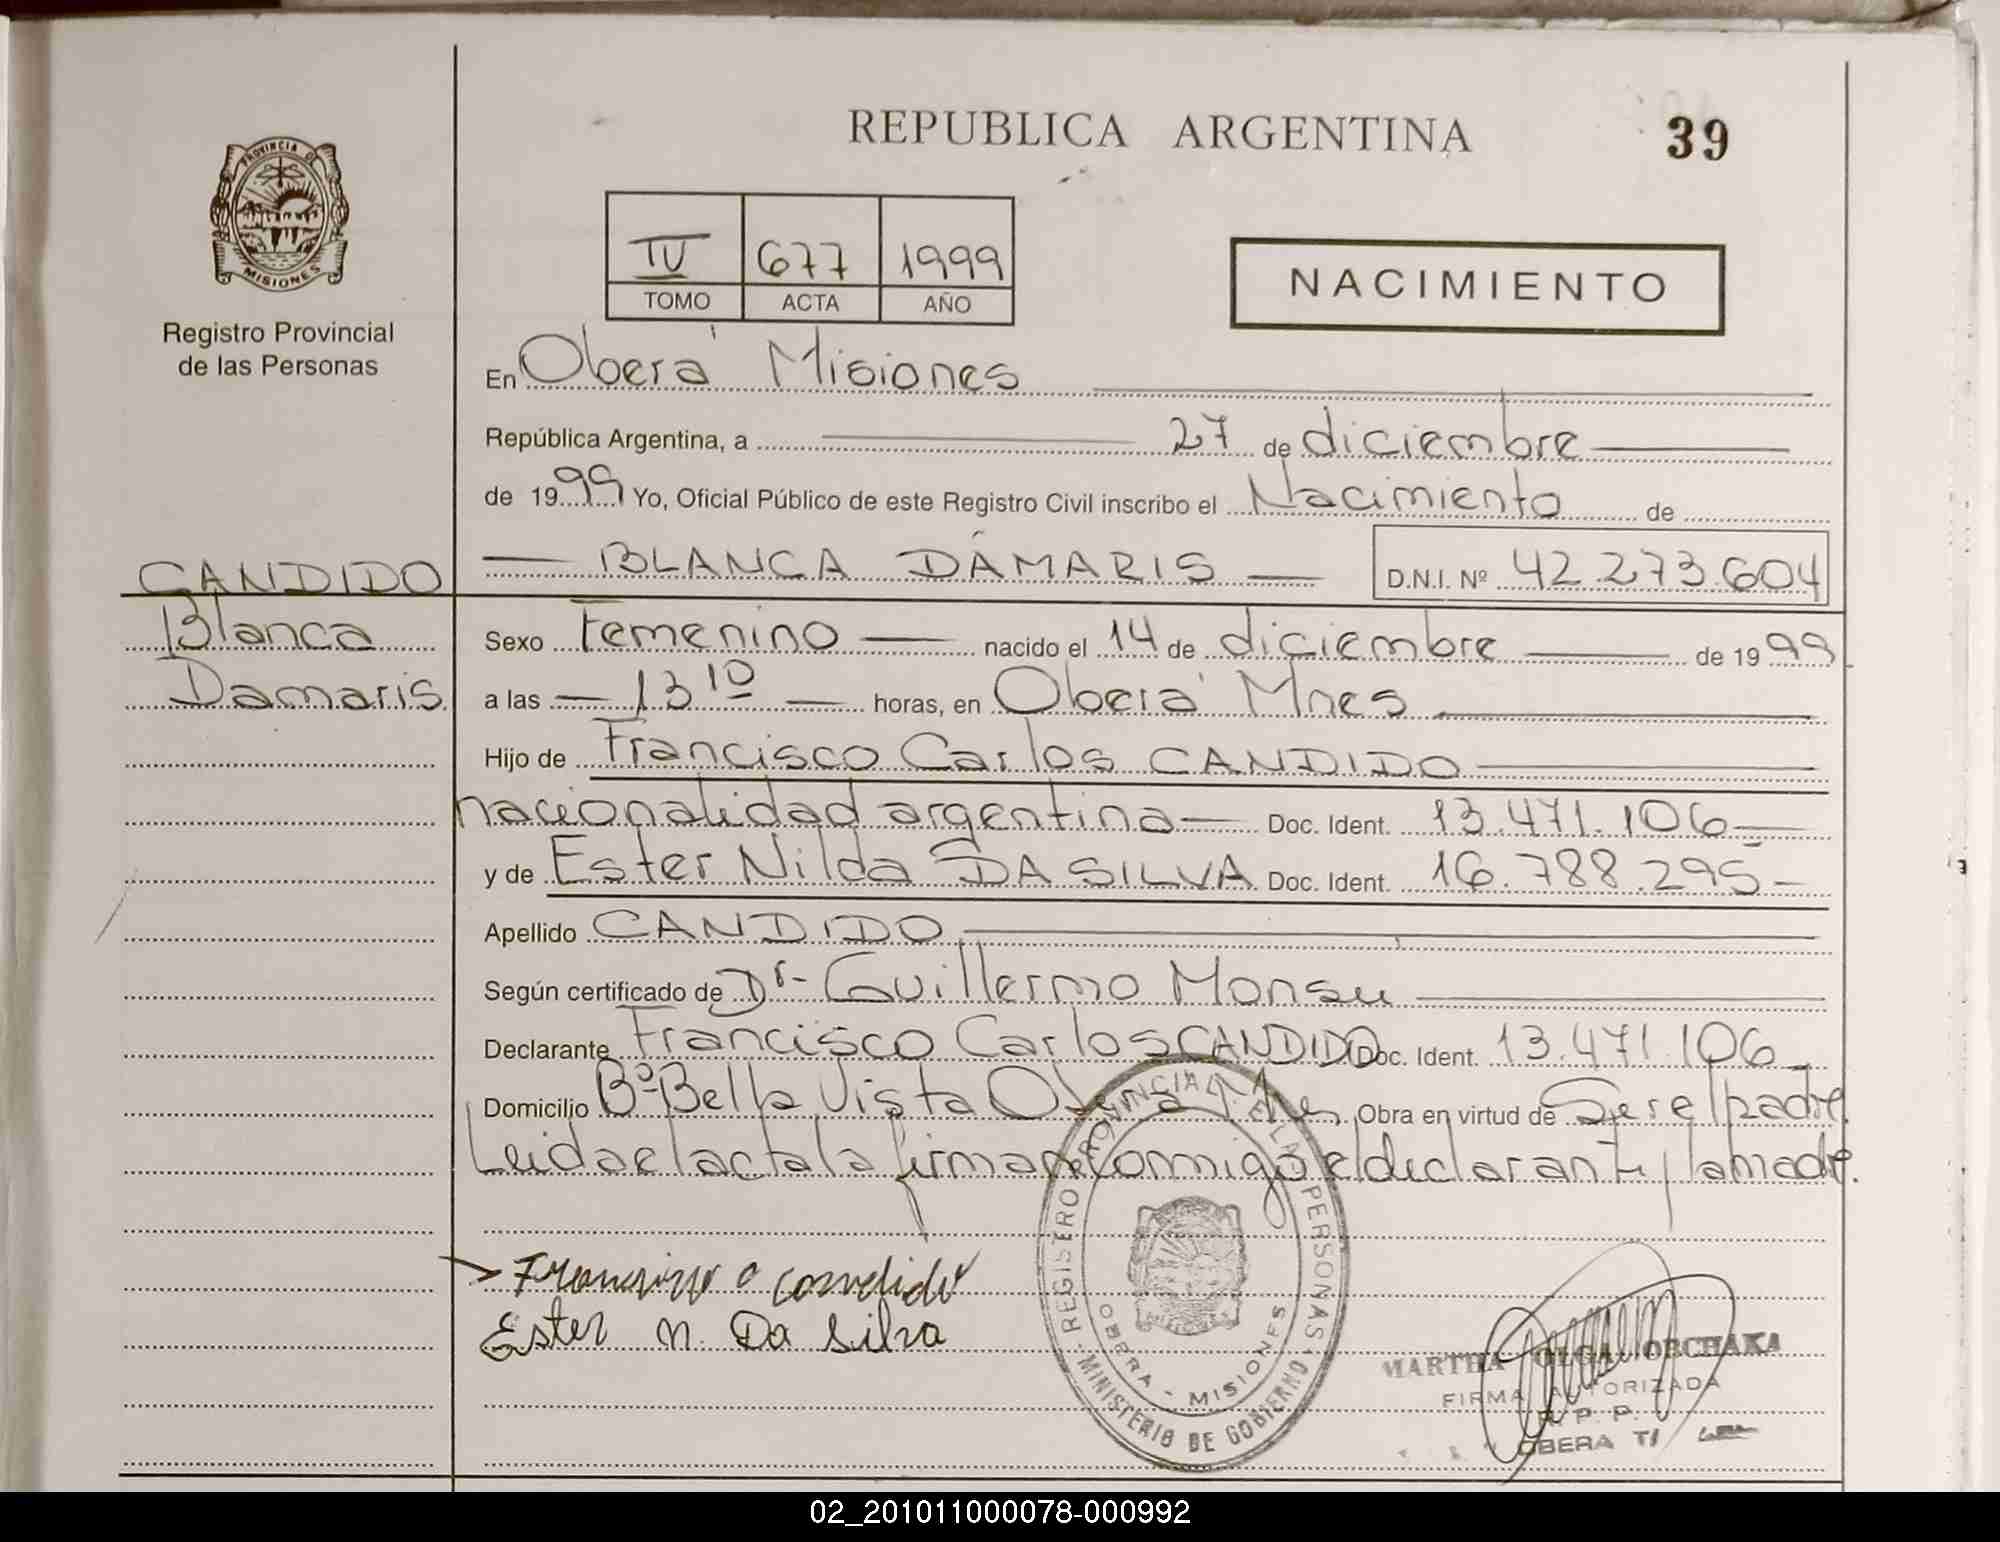 REPUBLICA ARGENTINA
39
PROVINCIA DE
MISIONES
Registro Provincial
de las Personas
IV 677 1999
TOMO ACTA AÑO
NACIMIENTO
En Oberá Misiones
República Argentina, a 27 de diciembre
de 1999 Yo, Oficial Público de este Registro Civil inscribo el Nacimiento de
BLANCA DÁMARIS D.N.I. Nº 42.273.604
CANDIDO
Blanca
Damaris
Sexo Femenino nacido el 14 de diciembre de 1999
a las 13 10 horas, en Oberá Mnes
Hijo de Francisco Carlos CANDIDO
nacionalidad argentina Doc. Ident. 13.471.106
y de Ester Nilda DA SILVA Doc. Ident. 16.788.295
Apellido CANDIDO
Según certificado de Dr. Guillermo Monsu
Declarante Francisco Carlos CANDIDO Doc. Ident. 13.471.106
Domicilio Bº Bella Vista Oberá Mnes Obra en virtud de Ser el padre
Leida el acta la firman conmigo el declarante y la madre.
Ester N. Da Silva
REGISTRO PROVINCIAL DE LAS PERSONAS
MINISTERIO DE GOBIERNO
OBERA - MISIONES
MARTHA OLGA OBCHAKA
FIRMA AUTORIZADA
R. P. P.
OBERA
02_201011000078-000992